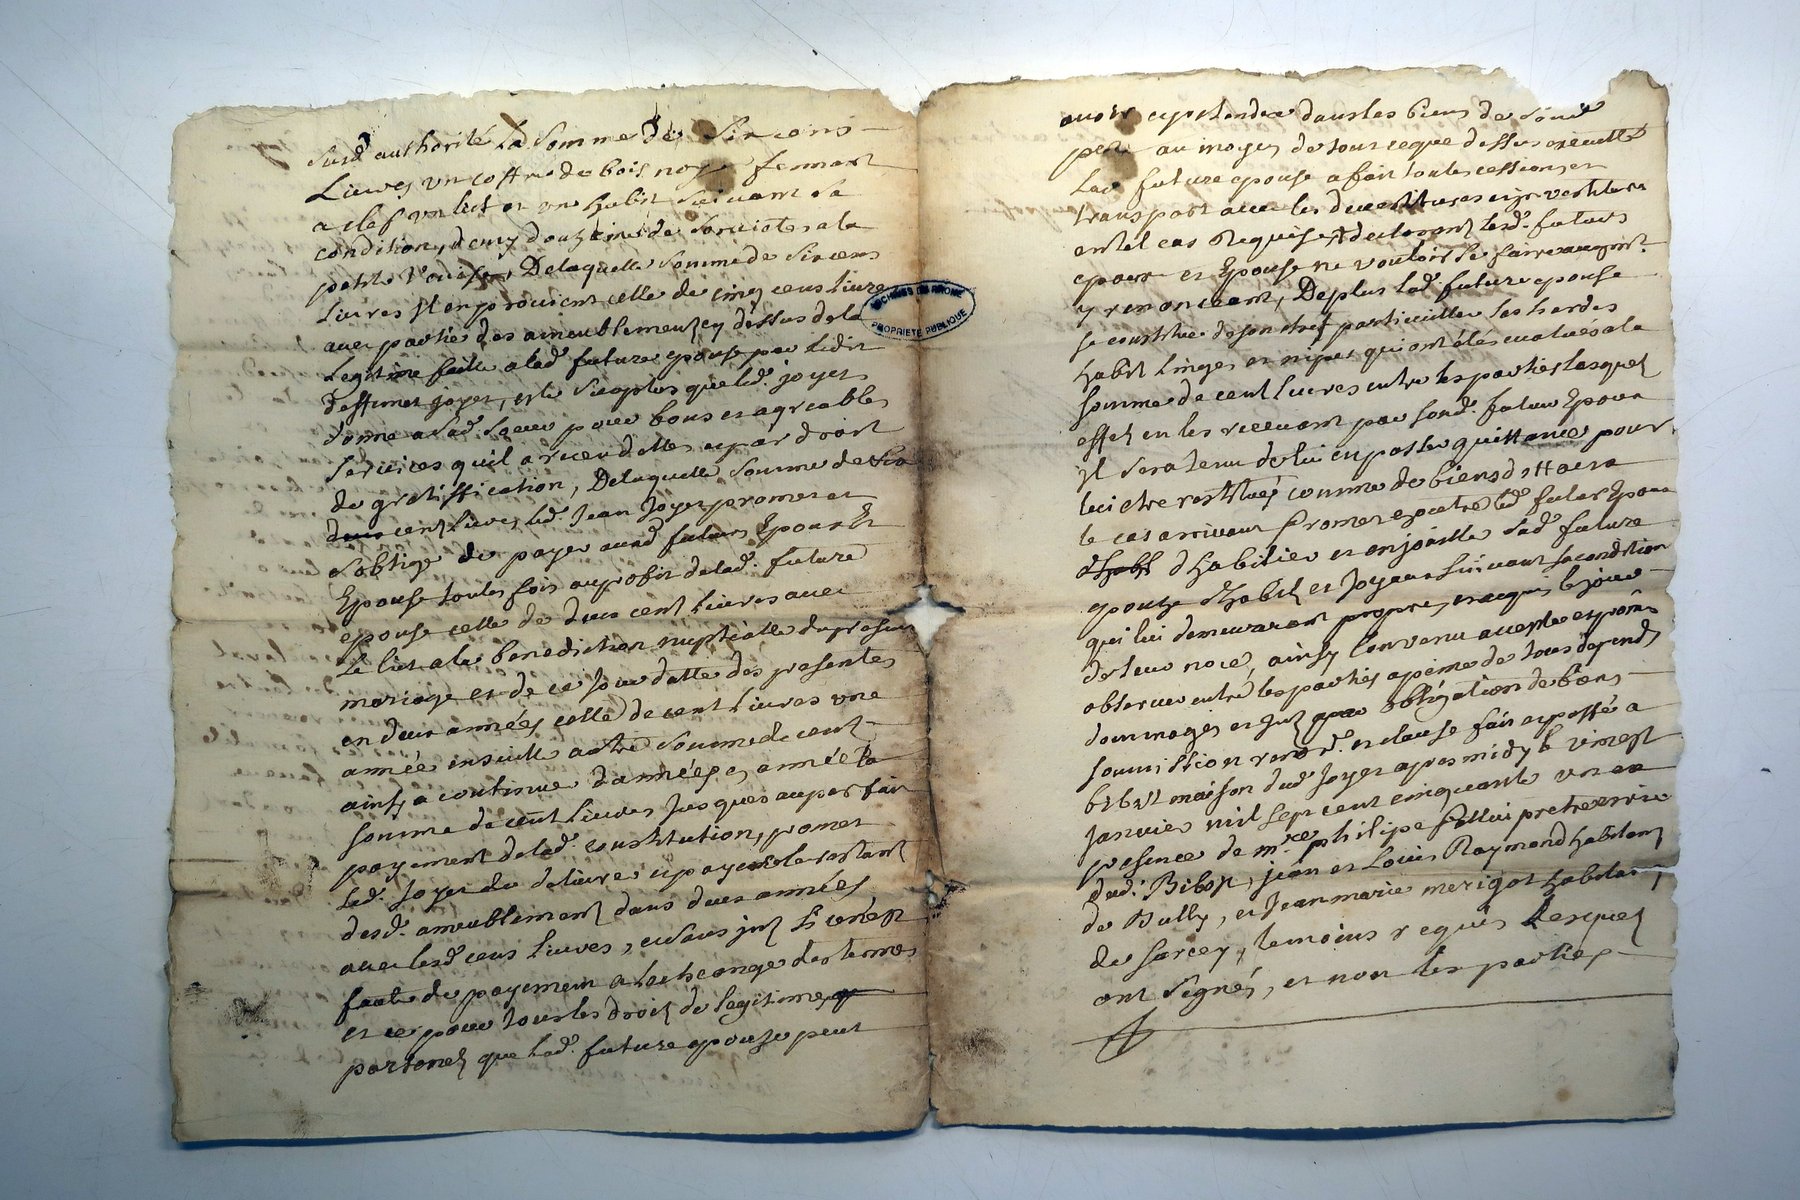 susd. authorité La Somme de Six cens
Livres un coffre de bois noyer fermant
a clef un lict et un habit suivant sa
condition, demy douzaine de serviettes a la
petite Venise, De laquelle somme de six cens
Livres Il en provient celle de cinq cens livres
avec partie des ameublements cy dessus de la
Legitime faitte a lad. future epouse par ledit
deffunct joyet, et le surplus que led. joyet
donne a sad. soeur pour bons et agreables
services qu'il a receu d'elle et par droit
de gratiffication, De laquelle somme de six
cent livres, led. Jean Joyet promet et
s'oblige de payer auxd. futurs Epoux Et
Epouse toutes fois au profit de lad. future
epouse celle de deux cent livres avec
Le lict a la benediction nuptialle du present
mariage et de ce jour datte des presentes
en deux années celle de cent livres une
année ensuitte autre somme de cent
ainsy a continuer d'années en année La
somme de cent livres jusques au parfait
payement de lad. constitution, promet
led. Joyet de delivrer et payer le restant
desd. ameublement dans deux années
avec lesd. cens livres,
faute de payement a l'echeange des termes
et ce pour tous les droits de legitime
que lad. future epouse peut
avoir et pretendre dans les biens de sond.
pere au moyen de tout ce que dessus
Lad. future epouse a fait toutes cessions et
transport avec les devestitures investitures
en tel cas Requise declarant lesd. futurs
epoux et Epouse ne vouloir se faire
y renonceant, De plus lad. future epouse
se constitue de son chef particuillier ses hardes
habit Linges et nipes qui ont étés evalués a la
somme de cent livres entre les parties lesquels
effets en les recevant par sond. futur Epoux
Il sera tenu de lui en passer quittance pour
lui etre restitués comme de biens dottaux
le cas arrivant Promet led. futur Epoux
d'habiller et enjoailler sad. future
epouze d'habits et Joyaux suivant sa condition
qui lui demeureront propres, et acquis le jour
de leur noce, ainsy Convenu accepté et promis
observer entre les parties a peine de tous depends
dommages et obligation de biens
soumission renond. et clause fait et passé a
bibost maison dud. Joyet apres midy le vingt
Janvier mil sept cent cinquante un en
presence de mre. philipe pretre vicaire
dud. Bibost, jean et Louis Raymond habitants
de Bully, et Jean marie merigot habitant
de Sarcey, temoins requis Lesquels
ont signés, et non les parties
ARCHIVES DU RHONE
PROPRIETE PUBLIQUE